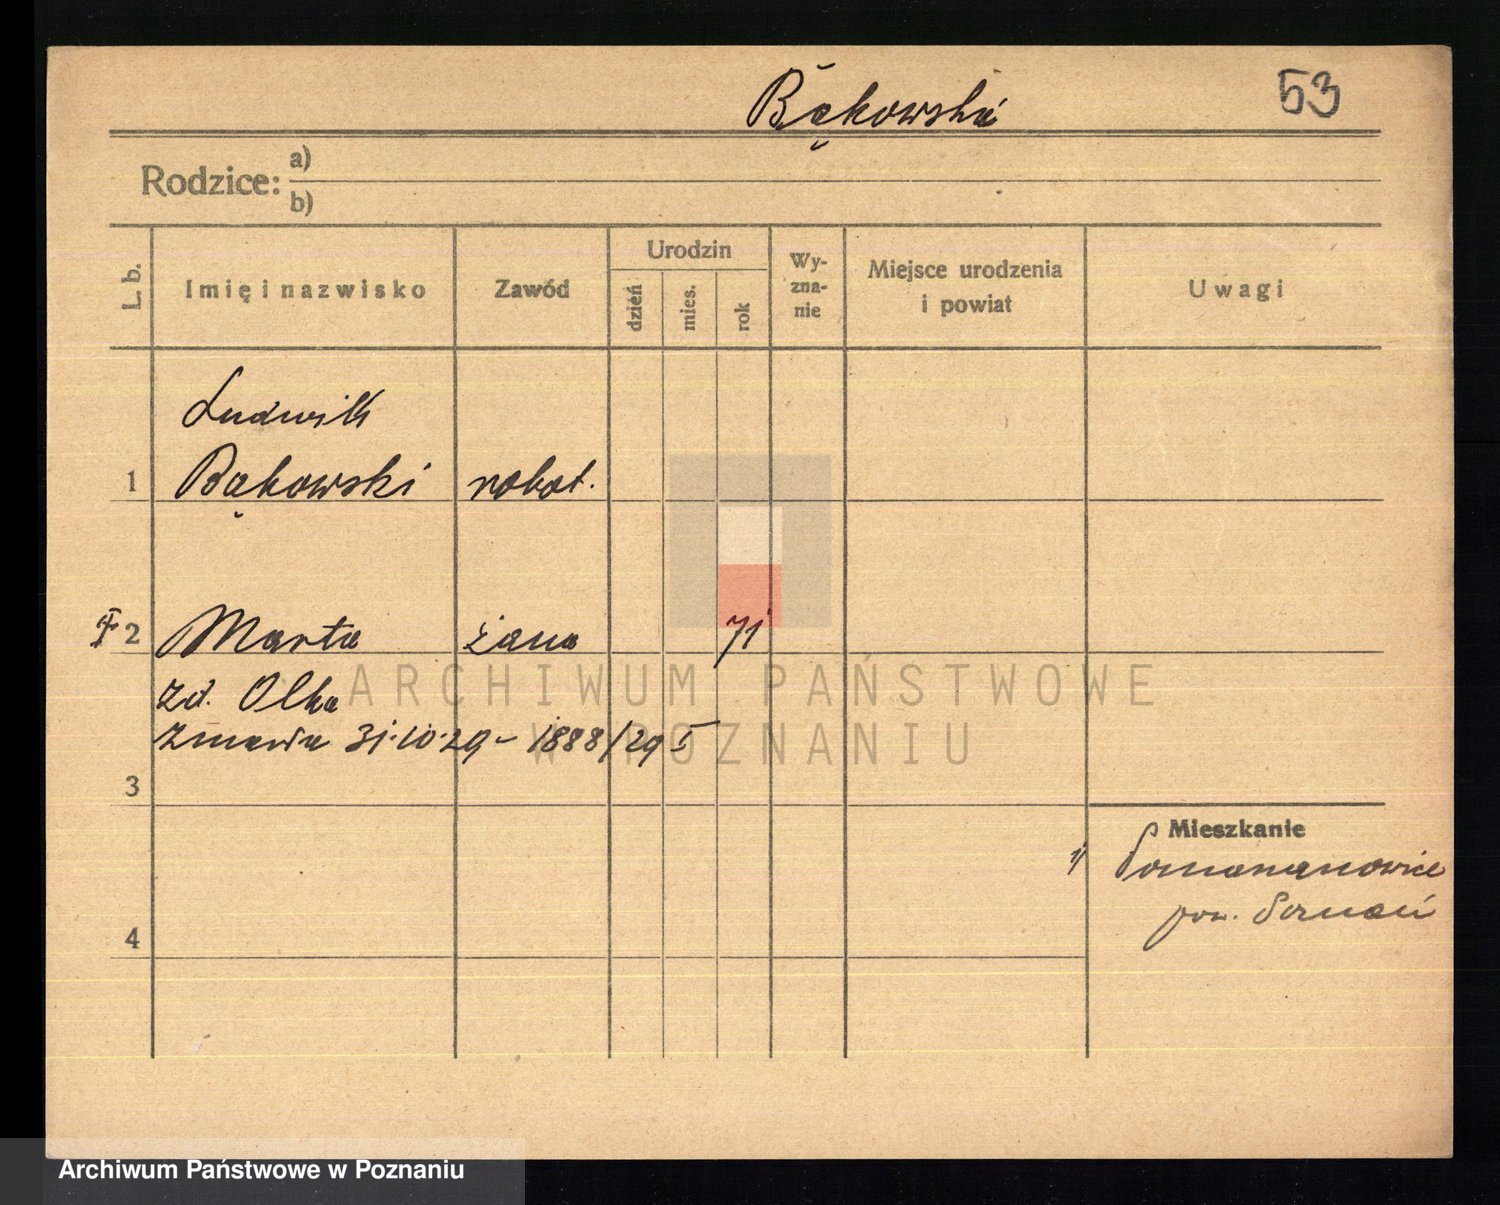 Bąkowski
53
Rodzice:
a)
b)
L. b.
Imię i nazwisko
Zawód
Urodzin
dzień
mies.
rok
Wy-
zna-
nie
Miejsce urodzenia
i powiat
Uwagi
Ludwik
1 Bąkowski robot.
2 Marta żona 71
zd. Olka
zmarła 31.10.29 - 1888/29 I
3
Mieszkanie
1/
pow. Poznań
4
ARCHIWUM PAŃSTWOWE
W POZNANIU
Archiwum Państwowe w Poznaniu